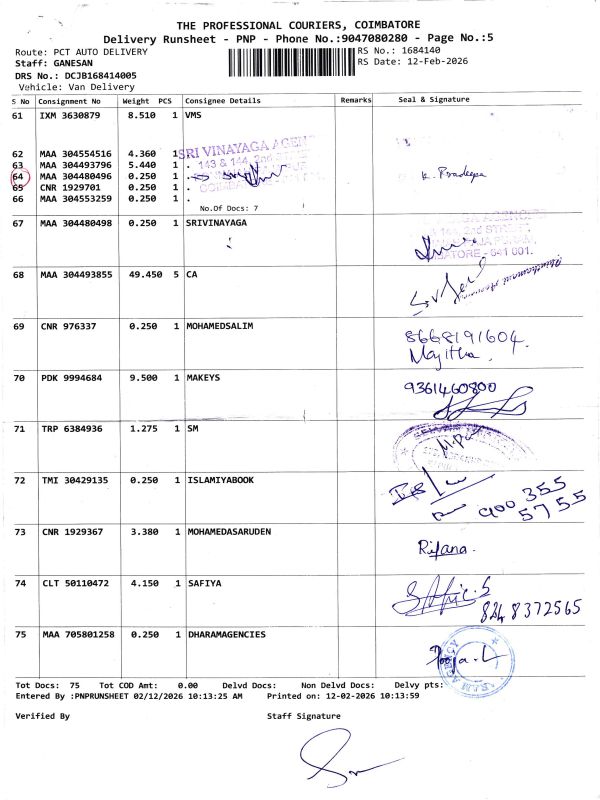 THE PROFESSIONAL COURIERS, COIMBATORE
Delivery Runsheet - PNP - Phone No.:9047080280 - Page No.:5
Route: PCT AUTO DELIVERY
RS No.: 1684140
Staff: GANESAN
RS Date: 12-Feb-2026
DRS No.: DCJB168414005
Vehicle: Van Delivery
S No Consignment No Weight PCS Consignee Details Remarks Seal & Signature
61 IXM 3630879 8.510 1 VMS
62 MAA 304554516 4.360 1
SRI VINAYAGA AGEN
63 MAA 304493796 5.440 1 .
143 & 144, 2nd
64 MAA 304480496 0.250 1 .
K. Pradeepa
65 CNR 1929701 0.250 1 .
66 MAA 304553259 0.250 1 .
No.Of Docs: 7
67 MAA 304480498 0.250 1 SRIVINAYAGA
641 001.
68 MAA 304493855 49.450 5 CA
69 CNR 976337 0.250 1 MOHAMEDSALIM
8668191604
Majitha.
70 PDK 9994684 9.500 1 MAKEYS
9361460800
71 TRP 6384936 1.275 1 SM
72 TMI 30429135 0.250 1 ISLAMIYABOOK
900 355
5755
73 CNR 1929367 3.380 1 MOHAMEDASARUDEN
Rifana.
74 CLT 50110472 4.150 1 SAFIYA
8248372565
75 MAA 705801258 0.250 1 DHARAMAGENCIES
Pooja.L
Tot Docs: 75 Tot COD Amt: 0.00 Delvd Docs: Non Delvd Docs: Delvy pts:
Entered By :PNPRUNSHEET 02/12/2026 10:13:25 AM Printed on: 12-02-2026 10:13:59
Verified By Staff Signature